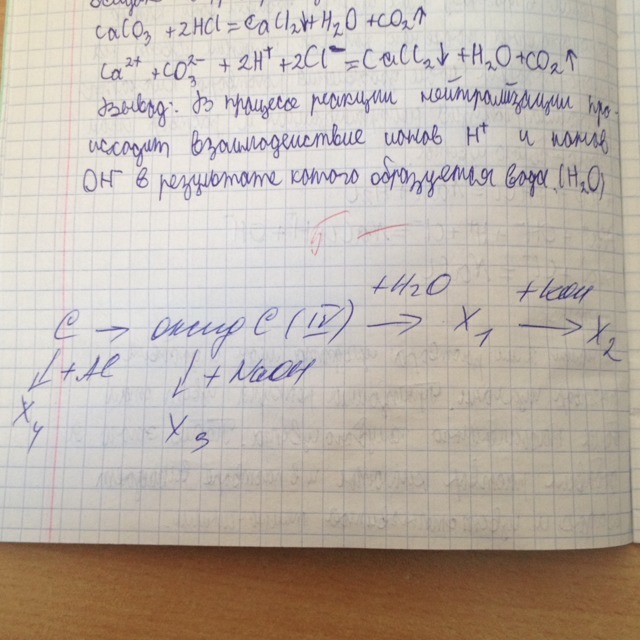 CaCO₃ + 2HCl = CaCl₂↓ + H₂O + CO₂↑
Ca²⁺ + CO₃²⁻ + 2H⁺ + 2Cl⁻ = CaCl₂↓ + H₂O + CO₂↑
Вывод: В процессе реакции нейтрализации про-
исходит взаимодействие ионов H⁺ и ионов
OH⁻ в результате котого образуется вода (H₂O)
5–
+H₂O +KOH
C → оксид C (IV) → X₁ → X₂
↓ +Al ↓ + NaOH
X₄ X₃